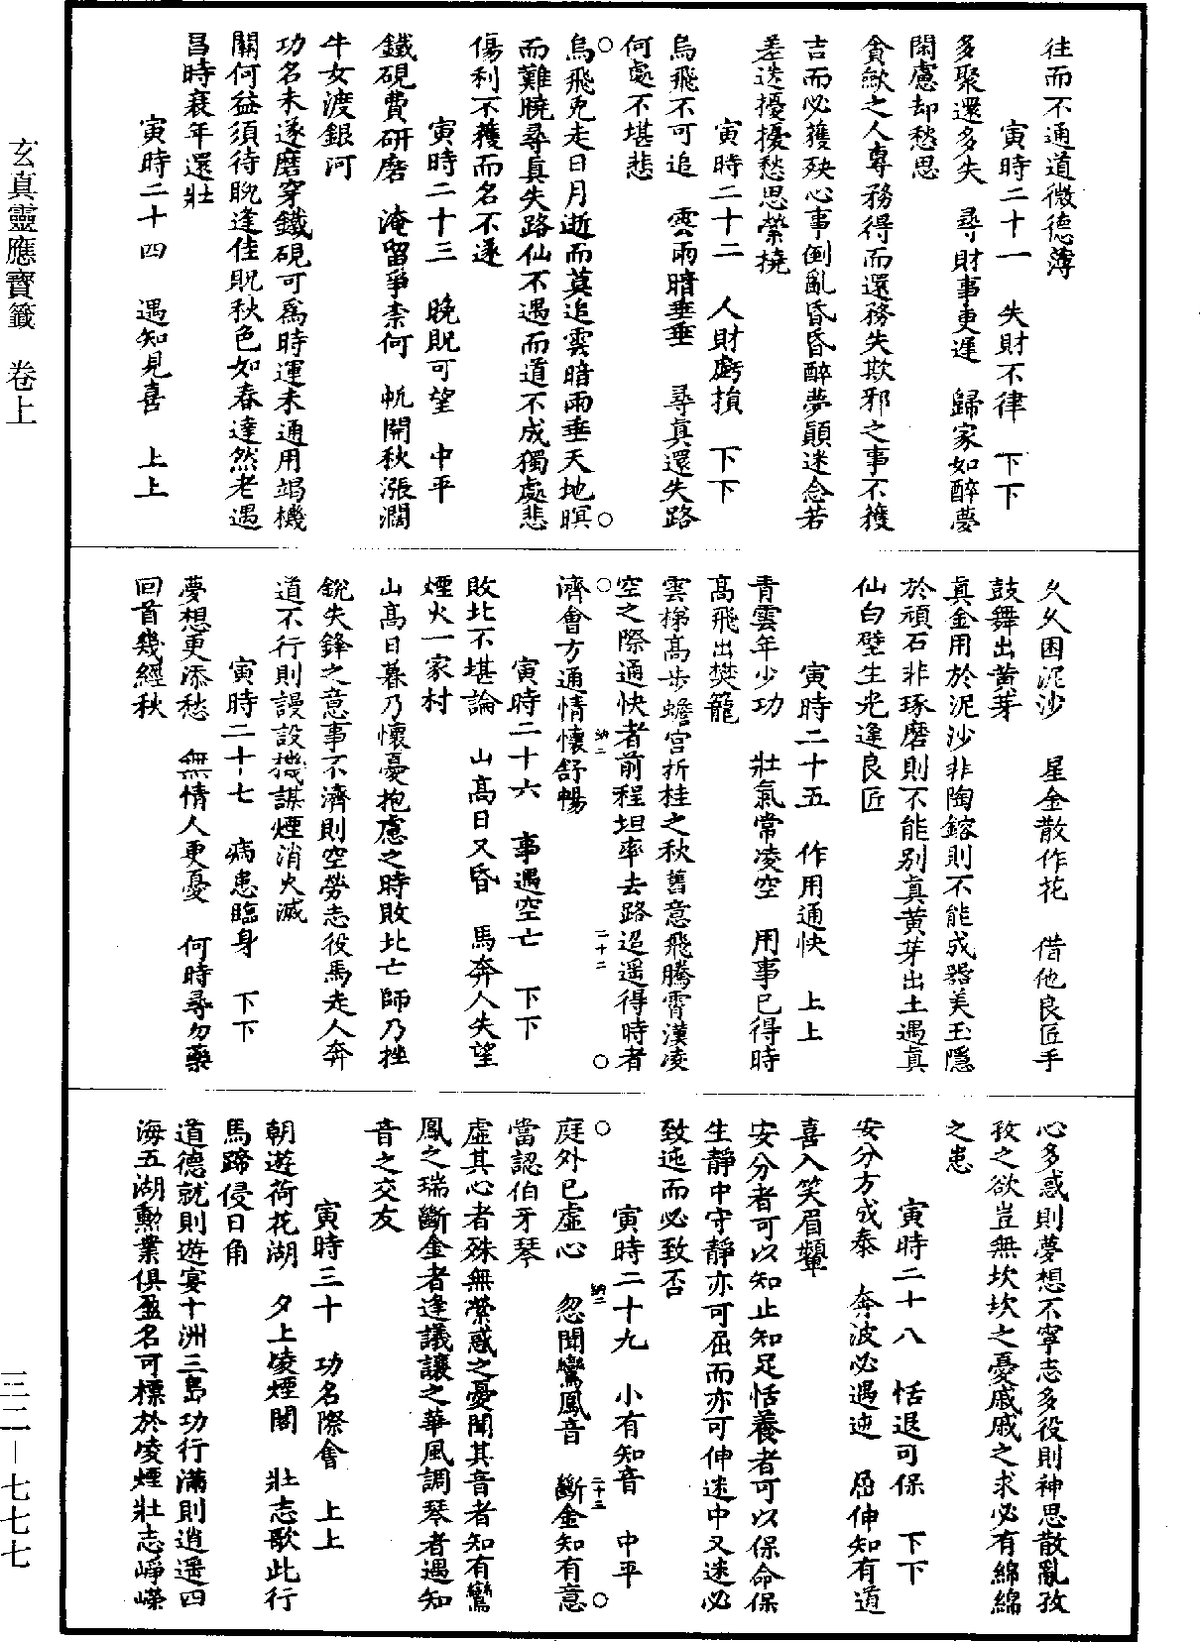 玄真靈應寶籤　卷上
三二—七七七
往而不通道微德薄
寅時二十一　失財不律　下下
多聚還多失　尋財事更遲　歸家如醉夢
閑慮却愁思
貪歛之人專務得而還務失欺邪之事不獲
吉而必獲殃心事倒亂昏昏醉夢顛迷念若
差迭擾擾愁思縈撓
寅時二十二　人財虧損　下下
烏飛不可追　雲雨暗垂垂　尋真還失路
何處不堪悲
烏飛兔走日月逝而莫追雲暗雨垂天地暝
而難曉尋真失路仙不遇而道不成獨處悲
傷利不獲而名不遂
寅時二十三　晚貺可望　中平
鐵硯費研磨　淹留爭柰何　帆開秋漲濶
牛女渡銀河
功名未遂磨穿鐵硯可為時運未通用竭機
關何益須待晚逢佳貺秋色如春達然老遇
昌時衰年還壯
寅時二十四　遇知見喜　上上
久久困泥沙　星金散作花　借他良匠手
鼓舞出黃芽
真金用於泥沙非陶鎔則不能成器美玉隱
於頑石非琢磨則不能别真黃芽出土遇真
仙白璧生光逢良匠
寅時二十五　作用通快　上上
青雲年少功　壯氣常凌空　用事已得時
高飛出樊籠
雲梯高步蟾宮折桂之秋舊意飛騰霄漢凌
空之際通快者前程坦率去路迢遥得時者
濟會方通情懷舒暢
寅時二十六　事遇空亡　下下
敗北不堪論　山高日又昏　馬奔人失望
煙火一家村
山高日暮乃懷憂抱慮之時敗北亡師乃挫
銳失鋒之意事不濟則空勞志役馬走人奔
道不行則謾設機謀煙消火滅
寅時二十七　病患臨身　下下
夢想更添愁　無情人更憂　何時尋勿藥
回首幾經秋
心多惑則夢想不寧志多役則神思散亂孜
孜之欲豈無坎坎之憂戚戚之求必有綿綿
之患
寅時二十八　恬退可保　下下
安分方成泰　奔波必遇迍　屈伸知有道
喜入笑眉顰
安分者可以知止知足恬養者可以保命保
生靜中守靜亦可屈而亦可伸迷中又迷必
致迍而必致否
寅時二十九　小有知音　中平
庭外已虛心　忽聞鸞鳳音　斷金知有意
當認伯牙琴
虛其心者殊無縈惑之憂聞其音者知有鸞
鳳之瑞斷金者逢議讓之華風調琴者遇知
音之交友
寅時三十　功名際會　上上
朝遊荷花湖　夕上凌煙閣　壯志歌此行
馬蹄侵日角
道德就則遊宴十洲三島功行滿則逍遥四
海五湖勳業俱盈名可標於凌煙壯志崢嶸